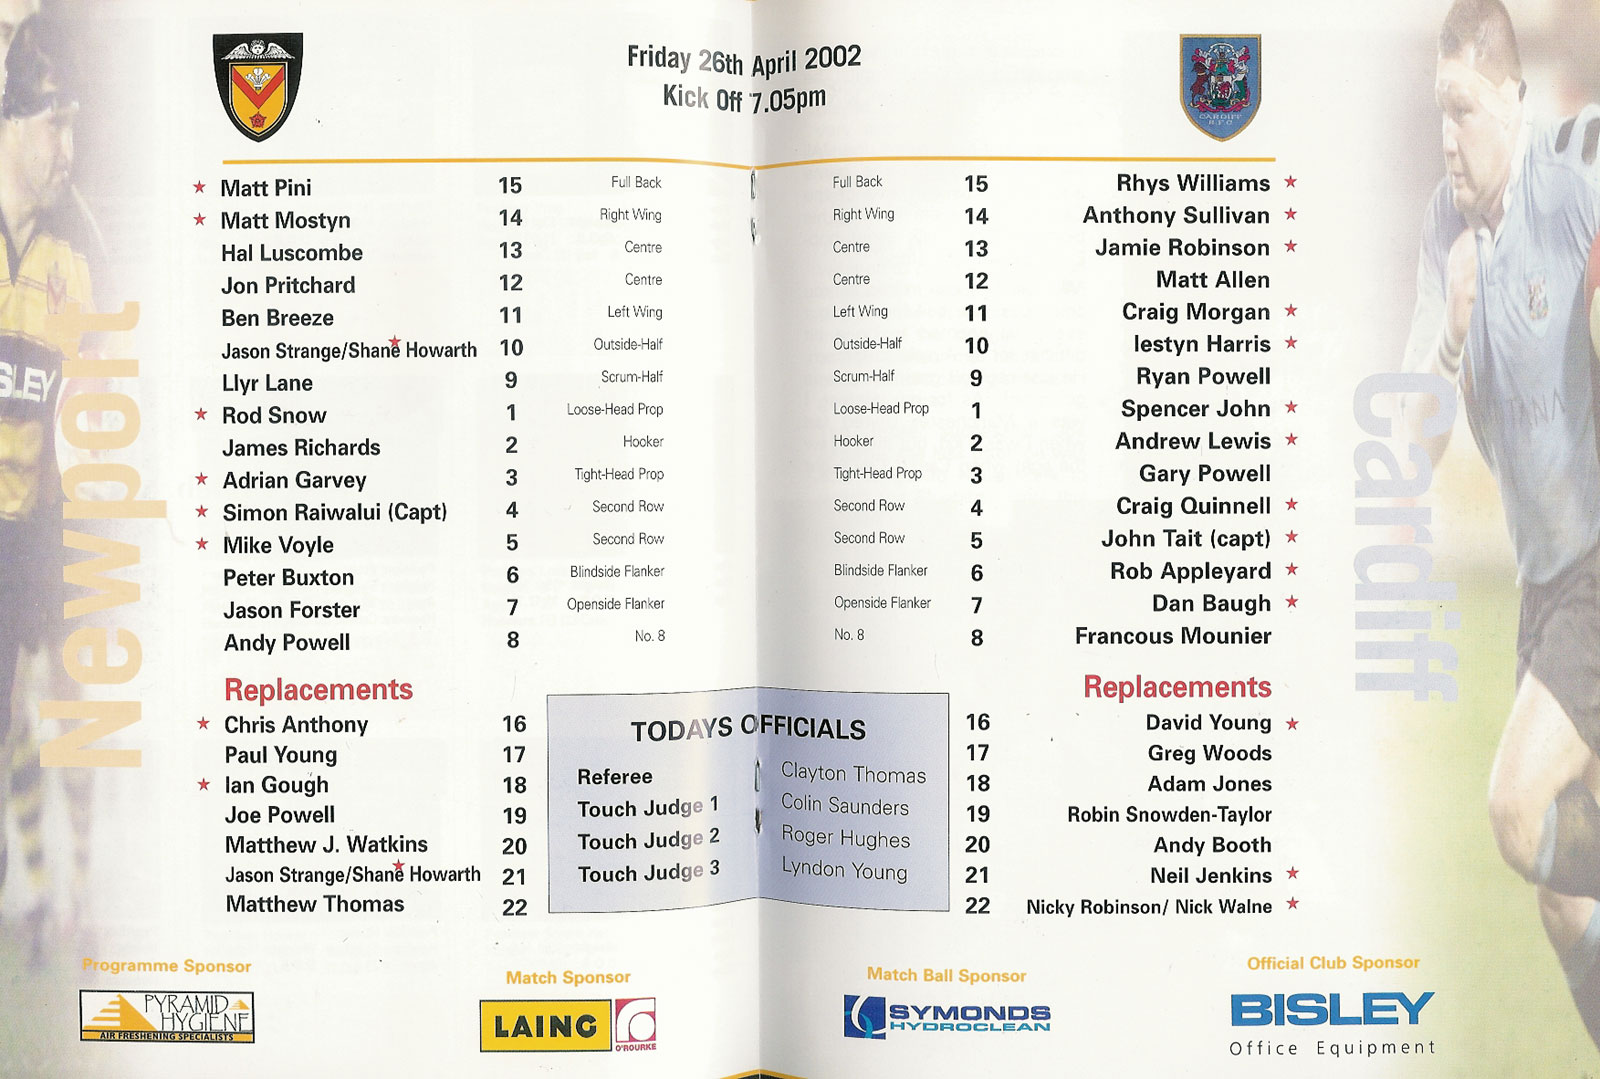 Friday 26th April 2002
Kick Off 7.05pm
CARDIFF
R.F.C
Newport
Cardiff
SLEY
Matt Pini 15 Full Back
Matt Mostyn 14 Right Wing
Hal Luscombe 13 Centre
Jon Pritchard 12 Centre
Ben Breeze 11 Left Wing
Jason Strange/Shane Howarth 10 Outside-Half
Llyr Lane 9 Scrum-Half
Rod Snow 1 Loose-Head Prop
James Richards 2 Hooker
Adrian Garvey 3 Tight-Head Prop
Simon Raiwalui (Capt) 4 Second Row
Mike Voyle 5 Second Row
Peter Buxton 6 Blindside Flanker
Jason Forster 7 Openside Flanker
Andy Powell 8 No. 8
Replacements
Chris Anthony 16
Paul Young 17
Ian Gough 18
Joe Powell 19
Matthew J. Watkins 20
Jason Strange/Shane Howarth 21
Matthew Thomas 22
Full Back 15 Rhys Williams
Right Wing 14 Anthony Sullivan
Centre 13 Jamie Robinson
Centre 12 Matt Allen
Left Wing 11 Craig Morgan
Outside-Half 10 Iestyn Harris
Scrum-Half 9 Ryan Powell
Loose-Head Prop 1 Spencer John
Hooker 2 Andrew Lewis
Tight-Head Prop 3 Gary Powell
Second Row 4 Craig Quinnell
Second Row 5 John Tait (capt)
Blindside Flanker 6 Rob Appleyard
Openside Flanker 7 Dan Baugh
No. 8 8 Francous Mounier
Replacements
16 David Young
17 Greg Woods
18 Adam Jones
19 Robin Snowden-Taylor
20 Andy Booth
21 Neil Jenkins
22 Nicky Robinson/ Nick Walne
TODAYS OFFICIALS
Referee Clayton Thomas
Touch Judge 1 Colin Saunders
Touch Judge 2 Roger Hughes
Touch Judge 3 Lyndon Young
Programme Sponsor
PYRAMID
HYGIENE
AIR FRESHENING SPECIALISTS
Match Sponsor
LAING
O'ROURKE
Match Ball Sponsor
SYMONDS
HYDROCLEAN
Official Club Sponsor
BISLEY
Office Equipment